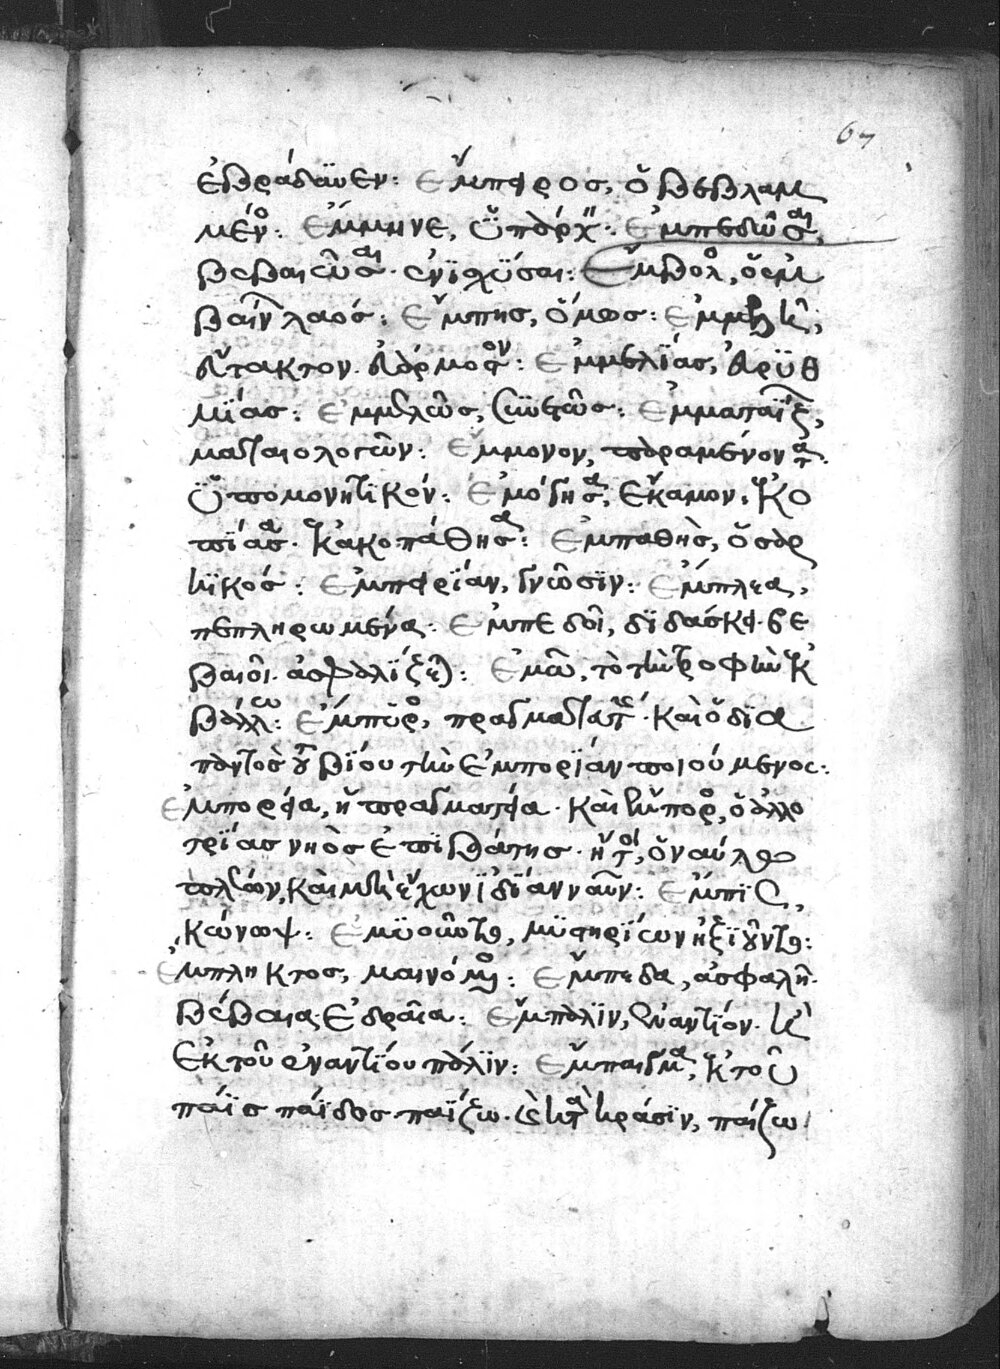 67
ἐβράδυνεν: ἔμπηρος, ὁ βεβλαμ
μένος: ἔμμηνε, ὑπάρχει. ἐμπεδῶσαι,
βεβαιῶσαι. ἐνϊσχῦσαι: ἔμβολος, ὁ ἐμ
βαίνων λαός: ἔμπης, ὅμως: ἐμμελὲς,
ἄτακτον. ἀνάρμοστον: ἐμμελίας, ἀρϋθ
μΐας: ἐμμελῶς, εὐτάκτως: ἐμματαΐζων,
ματαιολογῶν: ἔμμονον, παραμένοντα.
ὑπομονητικόν: ἐμόγησα, ἔκαμον. ἐκο
πίασα. ἐκακοπάθησα: ἐμπαθὴς, ὁ σαρ
κϊκός: ἐμπειρίαν, γνῶσϊν: ἔμπλεα,
πεπληρωμένα: ἐμπεδοῖ, δϊδάσκει. βε
βαιοῖ. ἀσφαλΐζεται: ἐμῶ, τὸ τὴν τροφὴν ἐκ
βάλλω: ἔμπορος, πραγματευτής. καὶ ὁ διὰ
παντὸς τοῦ βίου τὴν ἐμπορίαν ποιούμενος:
ἐμπορεία, ἡ πραγματεία. καὶ ἔμπορος, ὁ ἀλλο
τρίας νηὸς ἐπϊβάτης. ἤτοι, ὁ ναύλῳ
πλέων, καὶ μὴ ἔχων ϊδΐαν ναῦν: ἐμπὶς,
κώνωψ: ἐμϋοῦντο, μϋστηρίων ἠξϊοῦντο:
ἔμπληκτος, μαινόμενος: ἔμπεδα, ἀσφαλῆ.
βέβαια. ἑδραῖα: ἔμπαλϊν, ἐναντίον. καὶ
ἐκ τοῦ ἐναντίου πάλϊν: ἔμπαιγμα, ἐκ τοῦ
παΐς παΐδος παΐζω. καὶ κατὰ κράσϊν, παίζω